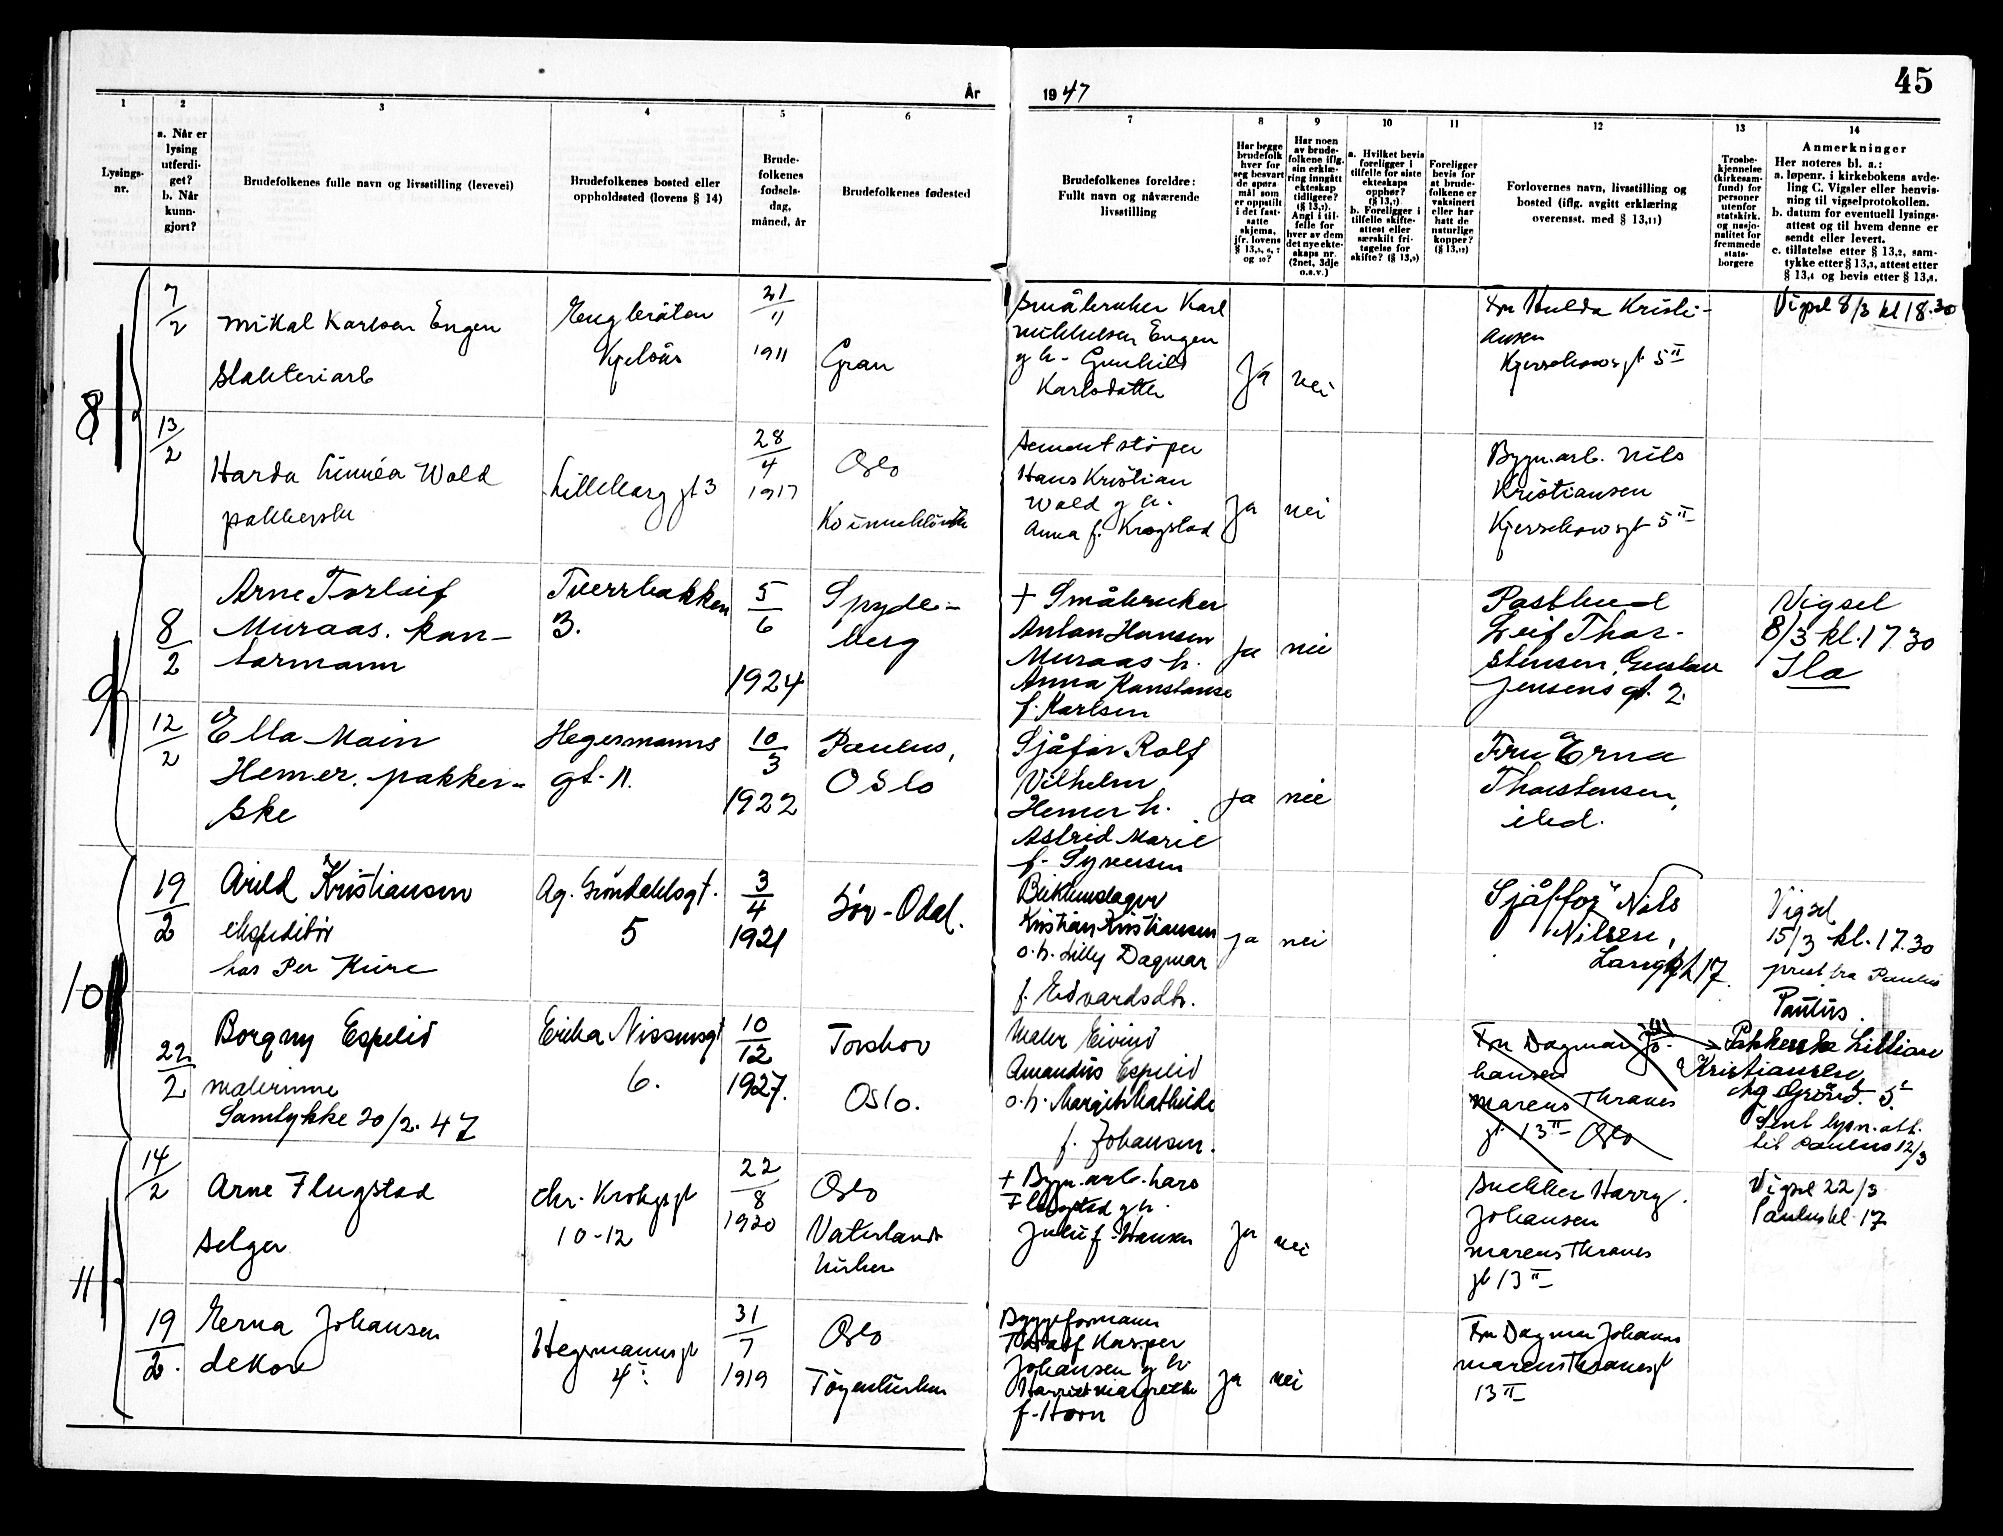 År
1947
45
1
2
3
4
5
6
7
8
9
10
11
12
13
14
Lysings-
nr.
a. Når er
lysing
utferdi-
get?
b. Når
kunn-
gjort?
Brudefolkenes fulle navn og livsstilling (levevei)
Brudefolkenes bosted eller
oppholdssted (lovens § 14)
Brude-
folkenes
fødsels-
dag,
måned, år
Brudefolkenes fødested
Brudefolkenes foreldre:
Fullt navn og nåværende
livsstilling
Har begge
brudefolk
hver for
seg besvart
de spørs-
mål som
er oppstilt
i det fast-
satte
skjema,
jfr. lovens
Har noen
av brude-
folkene iflg.
sin erklæ-
ring inngått
ekteskap
tidligere?
(§ 13,7).
Angi i til-
felle for
hver av dem
det nye ekte-
skaps nr.
(2net, 3dje
o.s.v.)
a. Hvilket bevis
foreligger i
tilfelle for siste
ekteskaps
opphør?
(§ 13,7)
b. Foreligger i
tilfelle skifte-
attest eller
særskilt fri-
tagelse for
skifte? (§ 13,9)
Foreligger
bevis for
at brude-
folkene er
vaksinert
eller har
hatt de
naturlige
kopper?
(§ 13,12)
Forlovernes navn, livsstilling og
bosted (iflg. avgitt erklæring
overensst. med § 13,11)
Trosbe-
kjennelse
(kirkesam-
fund) for
personer
utenfor
statskirk.
og nasjo-
nalitet for
fremmede
stats-
borgere
Anmerkninger
Her noteres bl. a.:
a. løpenr. i kirkebokens avde-
ling C. Vigsler eller henvis-
ning til vigselprotokollen.
b. datum for eventuell lysings-
attest og til hvem denne er
sendt eller levert.
c. tillatelse etter § 13,2, sam-
tykke etter § 13,3, attest etter
§ 13,4 og bevis etter § 13,8.
8
7/2
Mikal Karlsen Engen
Slakteriarb
Engbråten
Kjelsås
21/11
1911
Gran
Småbruker Karl
Mikkelsen Engen
g h. Gunhild
Karlsdatter
Ja
nei
Fru Hulda Kristi-
ansen
Kjerschowsgt 5 II
Vigsel 8/3 kl 18.30
13/2
Harda Linnéa Wold
pakkerske
Lilleborg gt 3
28/4
1917
Oslo
Sementstøper
Hans Kristian
Wold g h.
Anna f. Krogstad
Ja
nei
Bygn.arb. Nils
Kristiansen
Kjerschowsgt 5 II
9
8/2
Arne Torleif
Muraas. kon-
tormann
Tverrbakken
3.
5/6
1924
Spyde-
berg
+ Småbruker
Anton Hansen
Muraas h.
Anna Konstanse
f. Karlsen
Ja
nei
Postbud
Leif Thor-
stensen, Gustav
Jensens gt. 2.
Vigsel
8/3 kl. 17.30
Ila
12/2
Ella Main
Hemer. pakker-
ske
Hegermanns
gt. 11.
10/3
1922
Paulus,
Oslo
Sjåfør Rolf
Vilhelm
Hemer h.
Astrid Marie
f. Syversen
Ja
nei
Fru Erna
Thorstensen,
ibd.
10
19/2
Arild Kristiansen
ekspeditør
hos Per Kure
Ag. Grøndahlsgt.
5
3/4
1921
Sør-Odal.
Kristian Kristiansen
o.h. Lilly Dagmar
f. Edvardsdtr.
ja
nei
Sjåfför Nils
Nilsen,
Langgt 17.
Vigsel
15/3 kl. 17.30
prest fra Paulus
Paulus.
22/2
Borgny Espelid
malerinne
Samtykke 20/2.47
Erika Nissensgt
6.
10/12
1927.
Torshov
Oslo.
Maler Eivind
Amandus Espelid
o.h. Margit Mathilde
f. Johansen.
Fru Dagmar Jo-
hansen
Marcus Thranes
gt 13 II Oslo
Pakkerske Lillian
Kristiansen
Ag Grönd. 5.
Sent lysn.att.
til Paulus 12/3
11
14/2
Arne Flugstad
Selger
Chr. Krohgsgt
10-12
22/8
1920
Oslo
Vaterlands
kirken
+ Bygn.arb. Lars
Flugstad g h.
Julie f. Hansen
Ja
nei
Snekker Harry
Johansen
Marcus Thranes
gt 13 II
Vigsel 22/3
Paulus kl. 17
19/2.
Erna Johansen
dekor
Hegermannsgt
4 I
31/7
1919
Oslo
Tøyenkirken
Byggeformann
Kasper
Johansen g h.
Harriet Margrethe
f. Horn
Ja
nei
Fru Dagmar Johans
Marcus Thranesgt
13 II